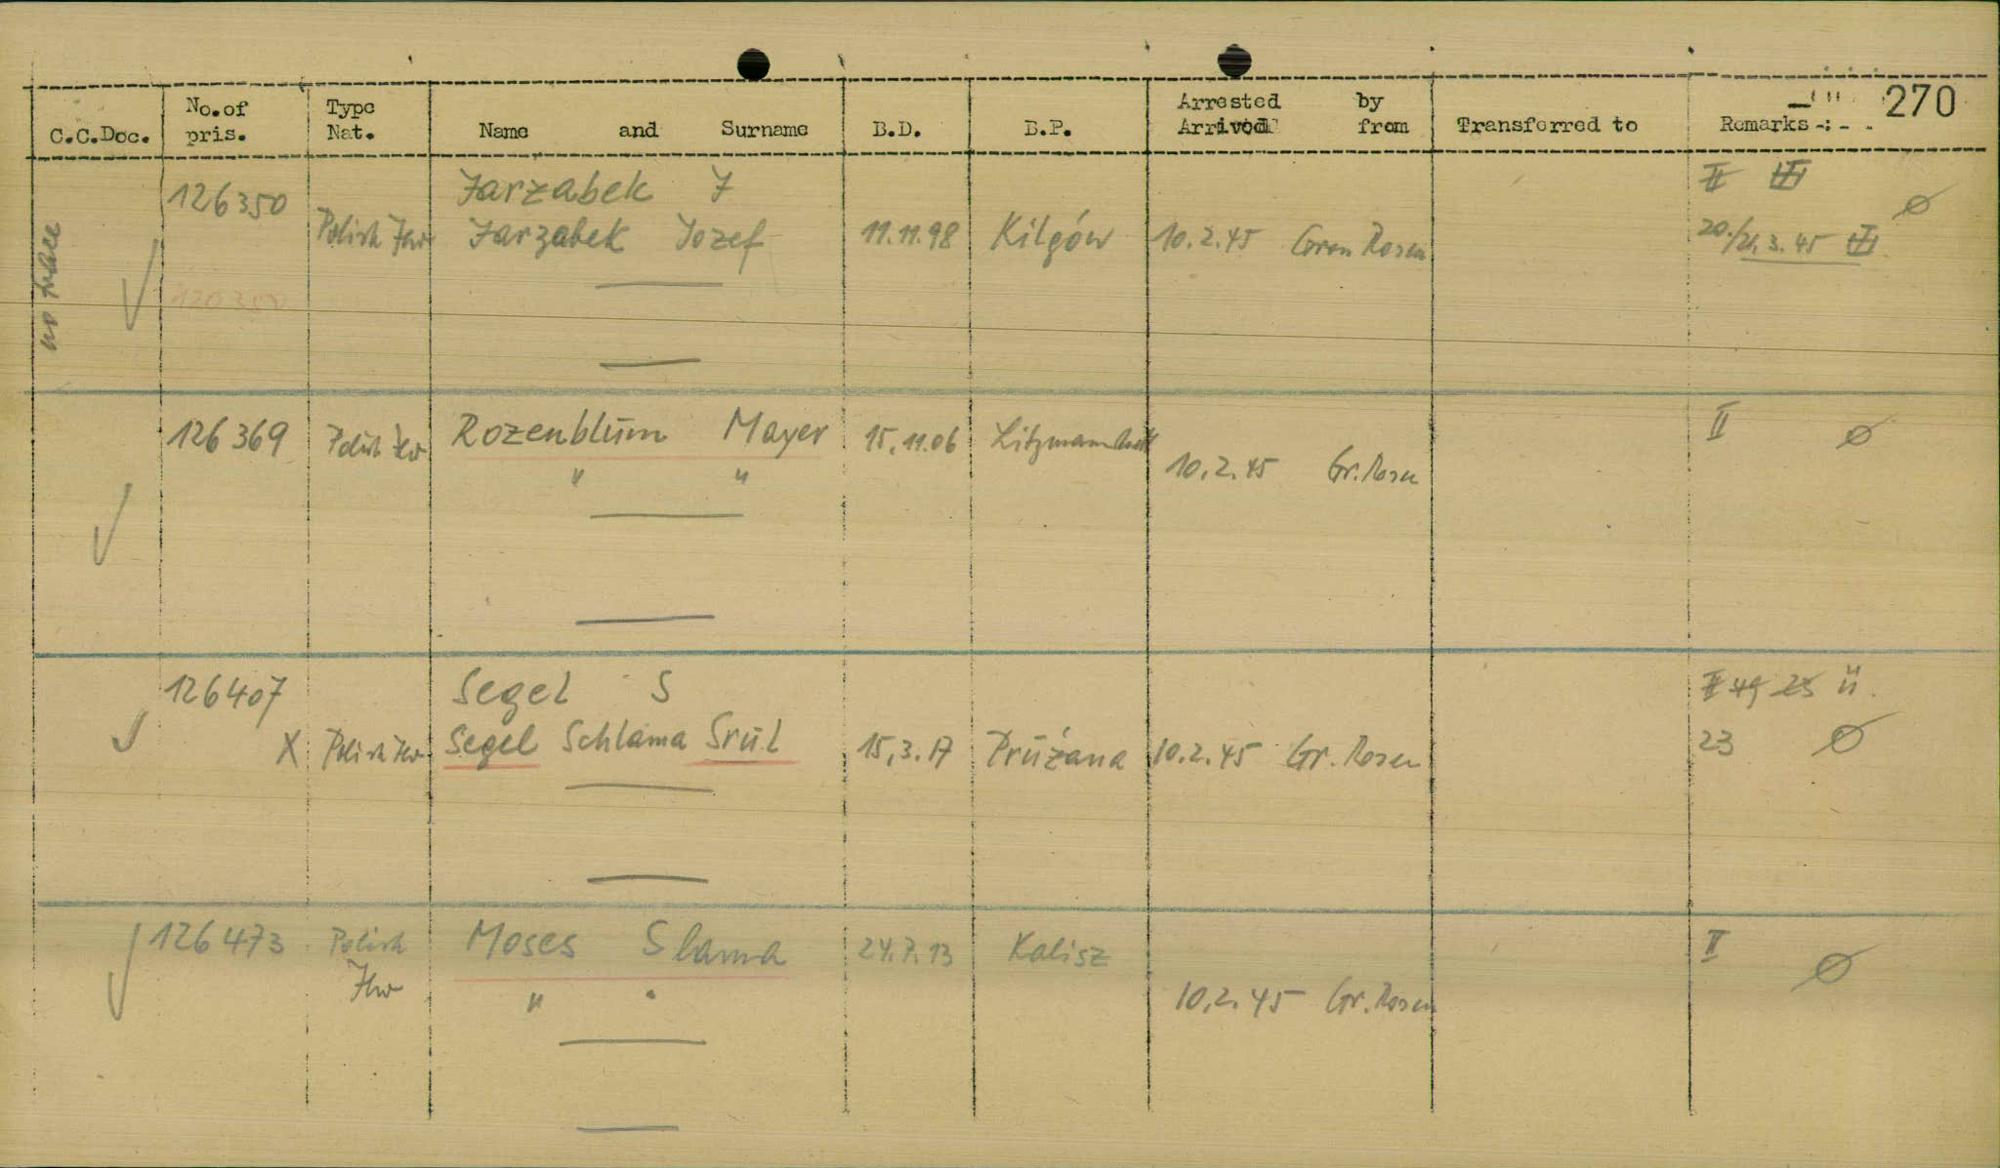 270
C.C.Doc. No. of pris. Type Nat. Name and Surname B.D. B.P. Arrested by Arrived from Transferred to Remarks -:-
126350 Jarzabek J II III
no trace Polish Jew Jarzabek Jozef 11.11.98 Kilgów 10.2.45 Gross Rosen 20./21.3.45 III Ø
126369 Polish Jew Rozenblum Mayer 15.11.06 Litzmannstadt 10.2.45 Gr. Rosen II Ø
" "
126407 Segel S II 49 25 ü.
X Polish Jew Segel Schlama Srul 15.3.17 Prużana 10.2.45 Gr. Rosen 23 Ø
126473 Polish Jew Moses Slama 24.7.13 Kalisz 10.2.45 Gr. Rosen II Ø
" "